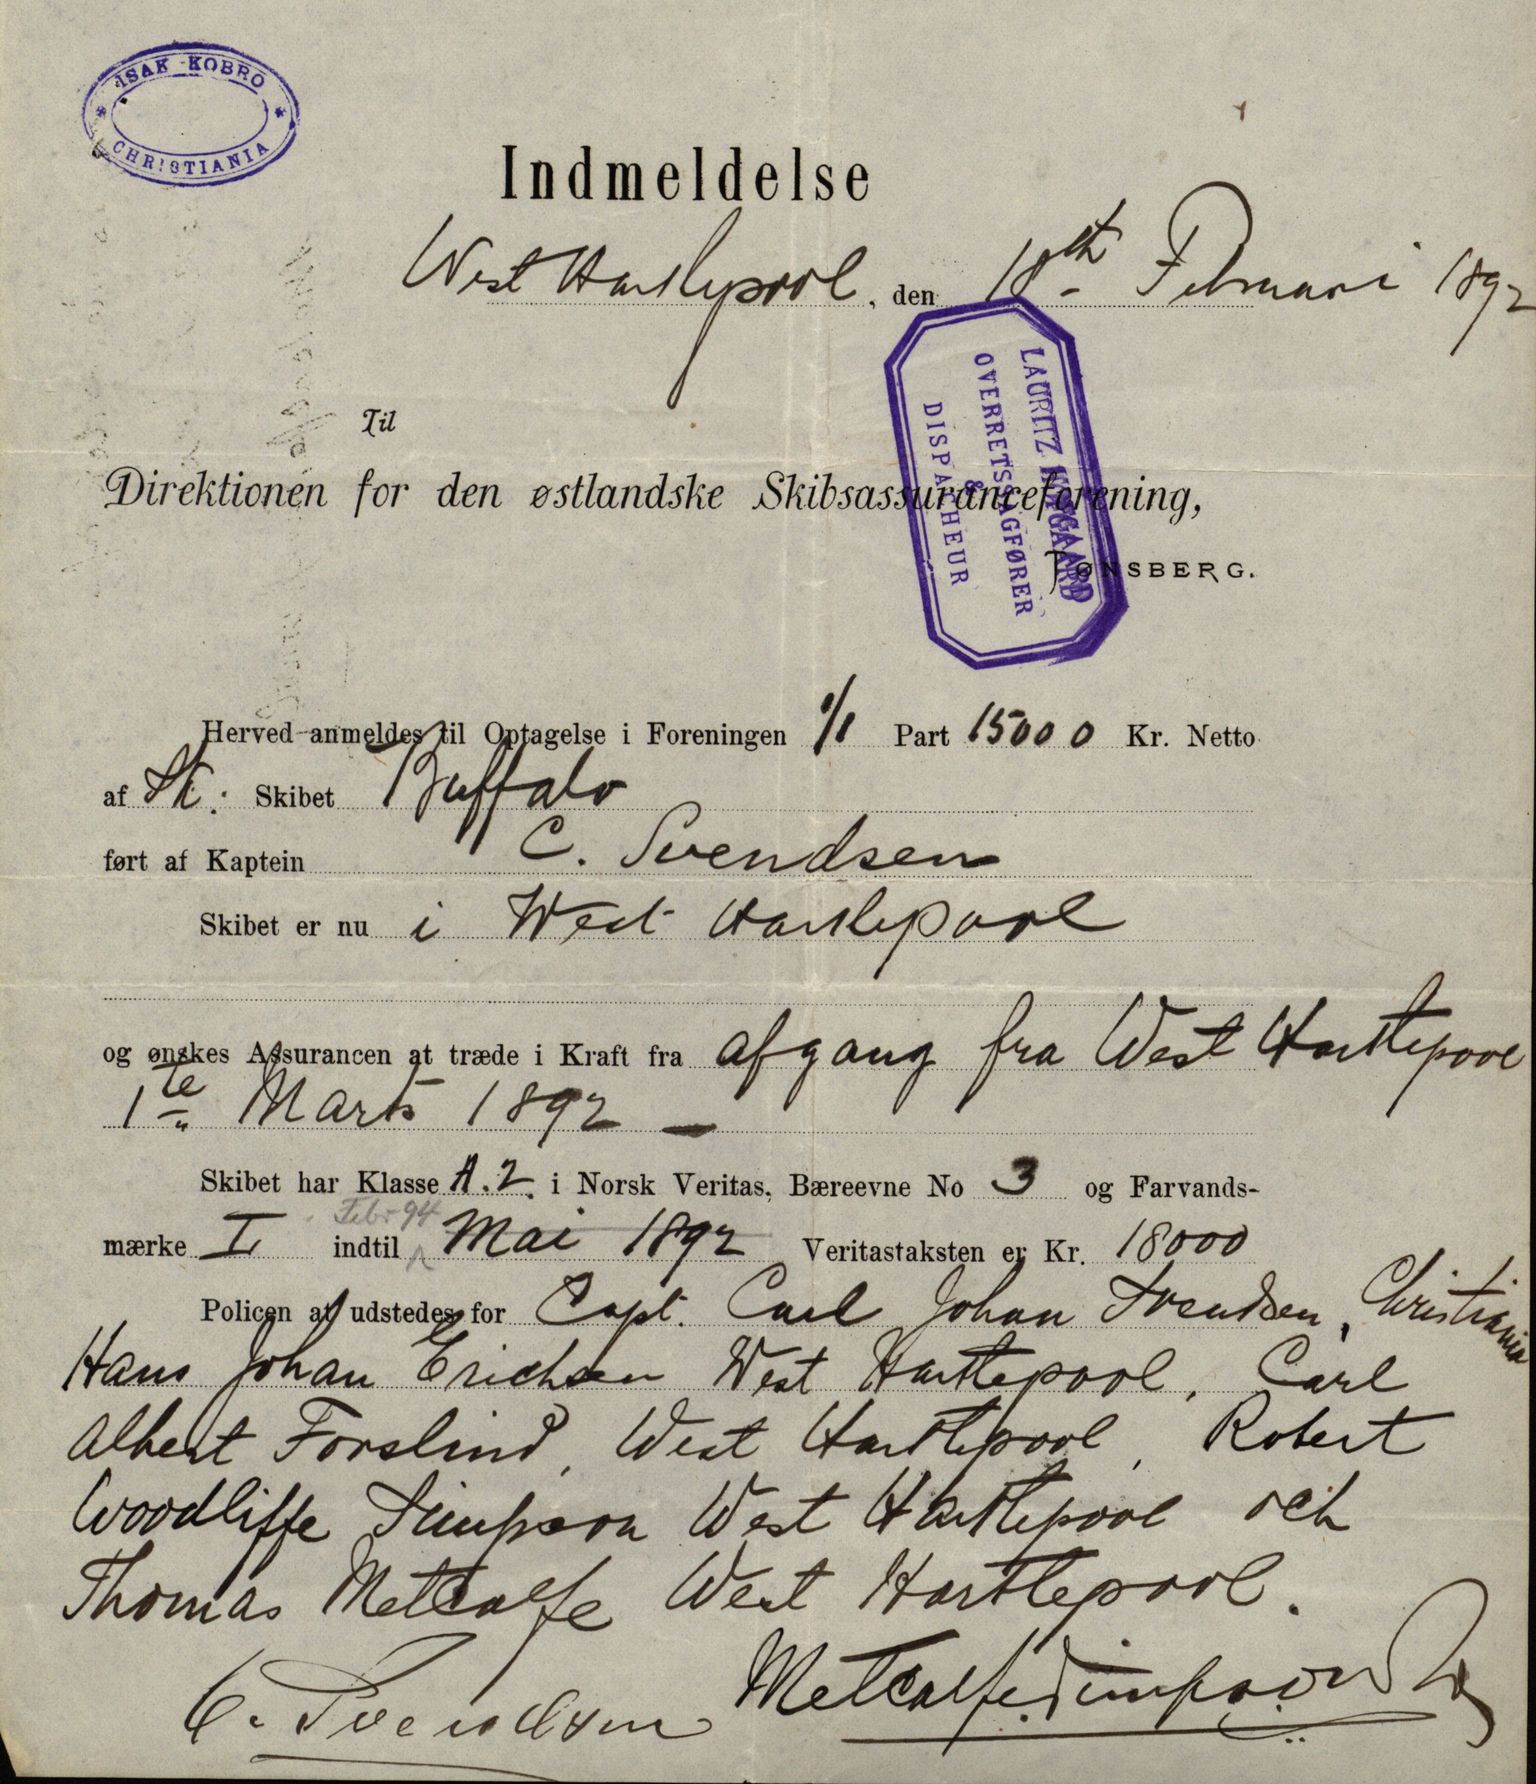 ISAK KOBRO
CHRISTIANIA
Indmeldelse
West Hartlepool, den 18th Februari 1892
LAURITZ
OVERRETSSAGFØRER
&
DISPACHEUR
Til
Direktionen for den østlandske Skibsassuranceforening,
TØNSBERG.
Herved anmeldes til Optagelse i Foreningen 1/1 Part 15000 Kr. Netto
af Sk: Skibet Buffalo
ført af Kaptein C. Svendsen
Skibet er nu i West Hartlepool
og ønskes Assurancen at træde i Kraft fra afgang fra West Hartlepool
1te Marts 1892 —
Skibet har Klasse A.2. i Norsk Veritas, Bæreevne No 3 og Farvands-
Febr 94
mærke I indtil Mai 1892 Veritastaksten er Kr. 18000
Policen at udstedes for Capt. Carl Johan Svendsen, Christiania
Hans Johan Erichsen West Hartlepool, Carl
Albert Forslind, West Hartlepool, Robert
Woodliffe Simpson West Hartlepool och
Thomas Metcalfe West Hartlepool.
C. Svendsen Metcalfe Simpson